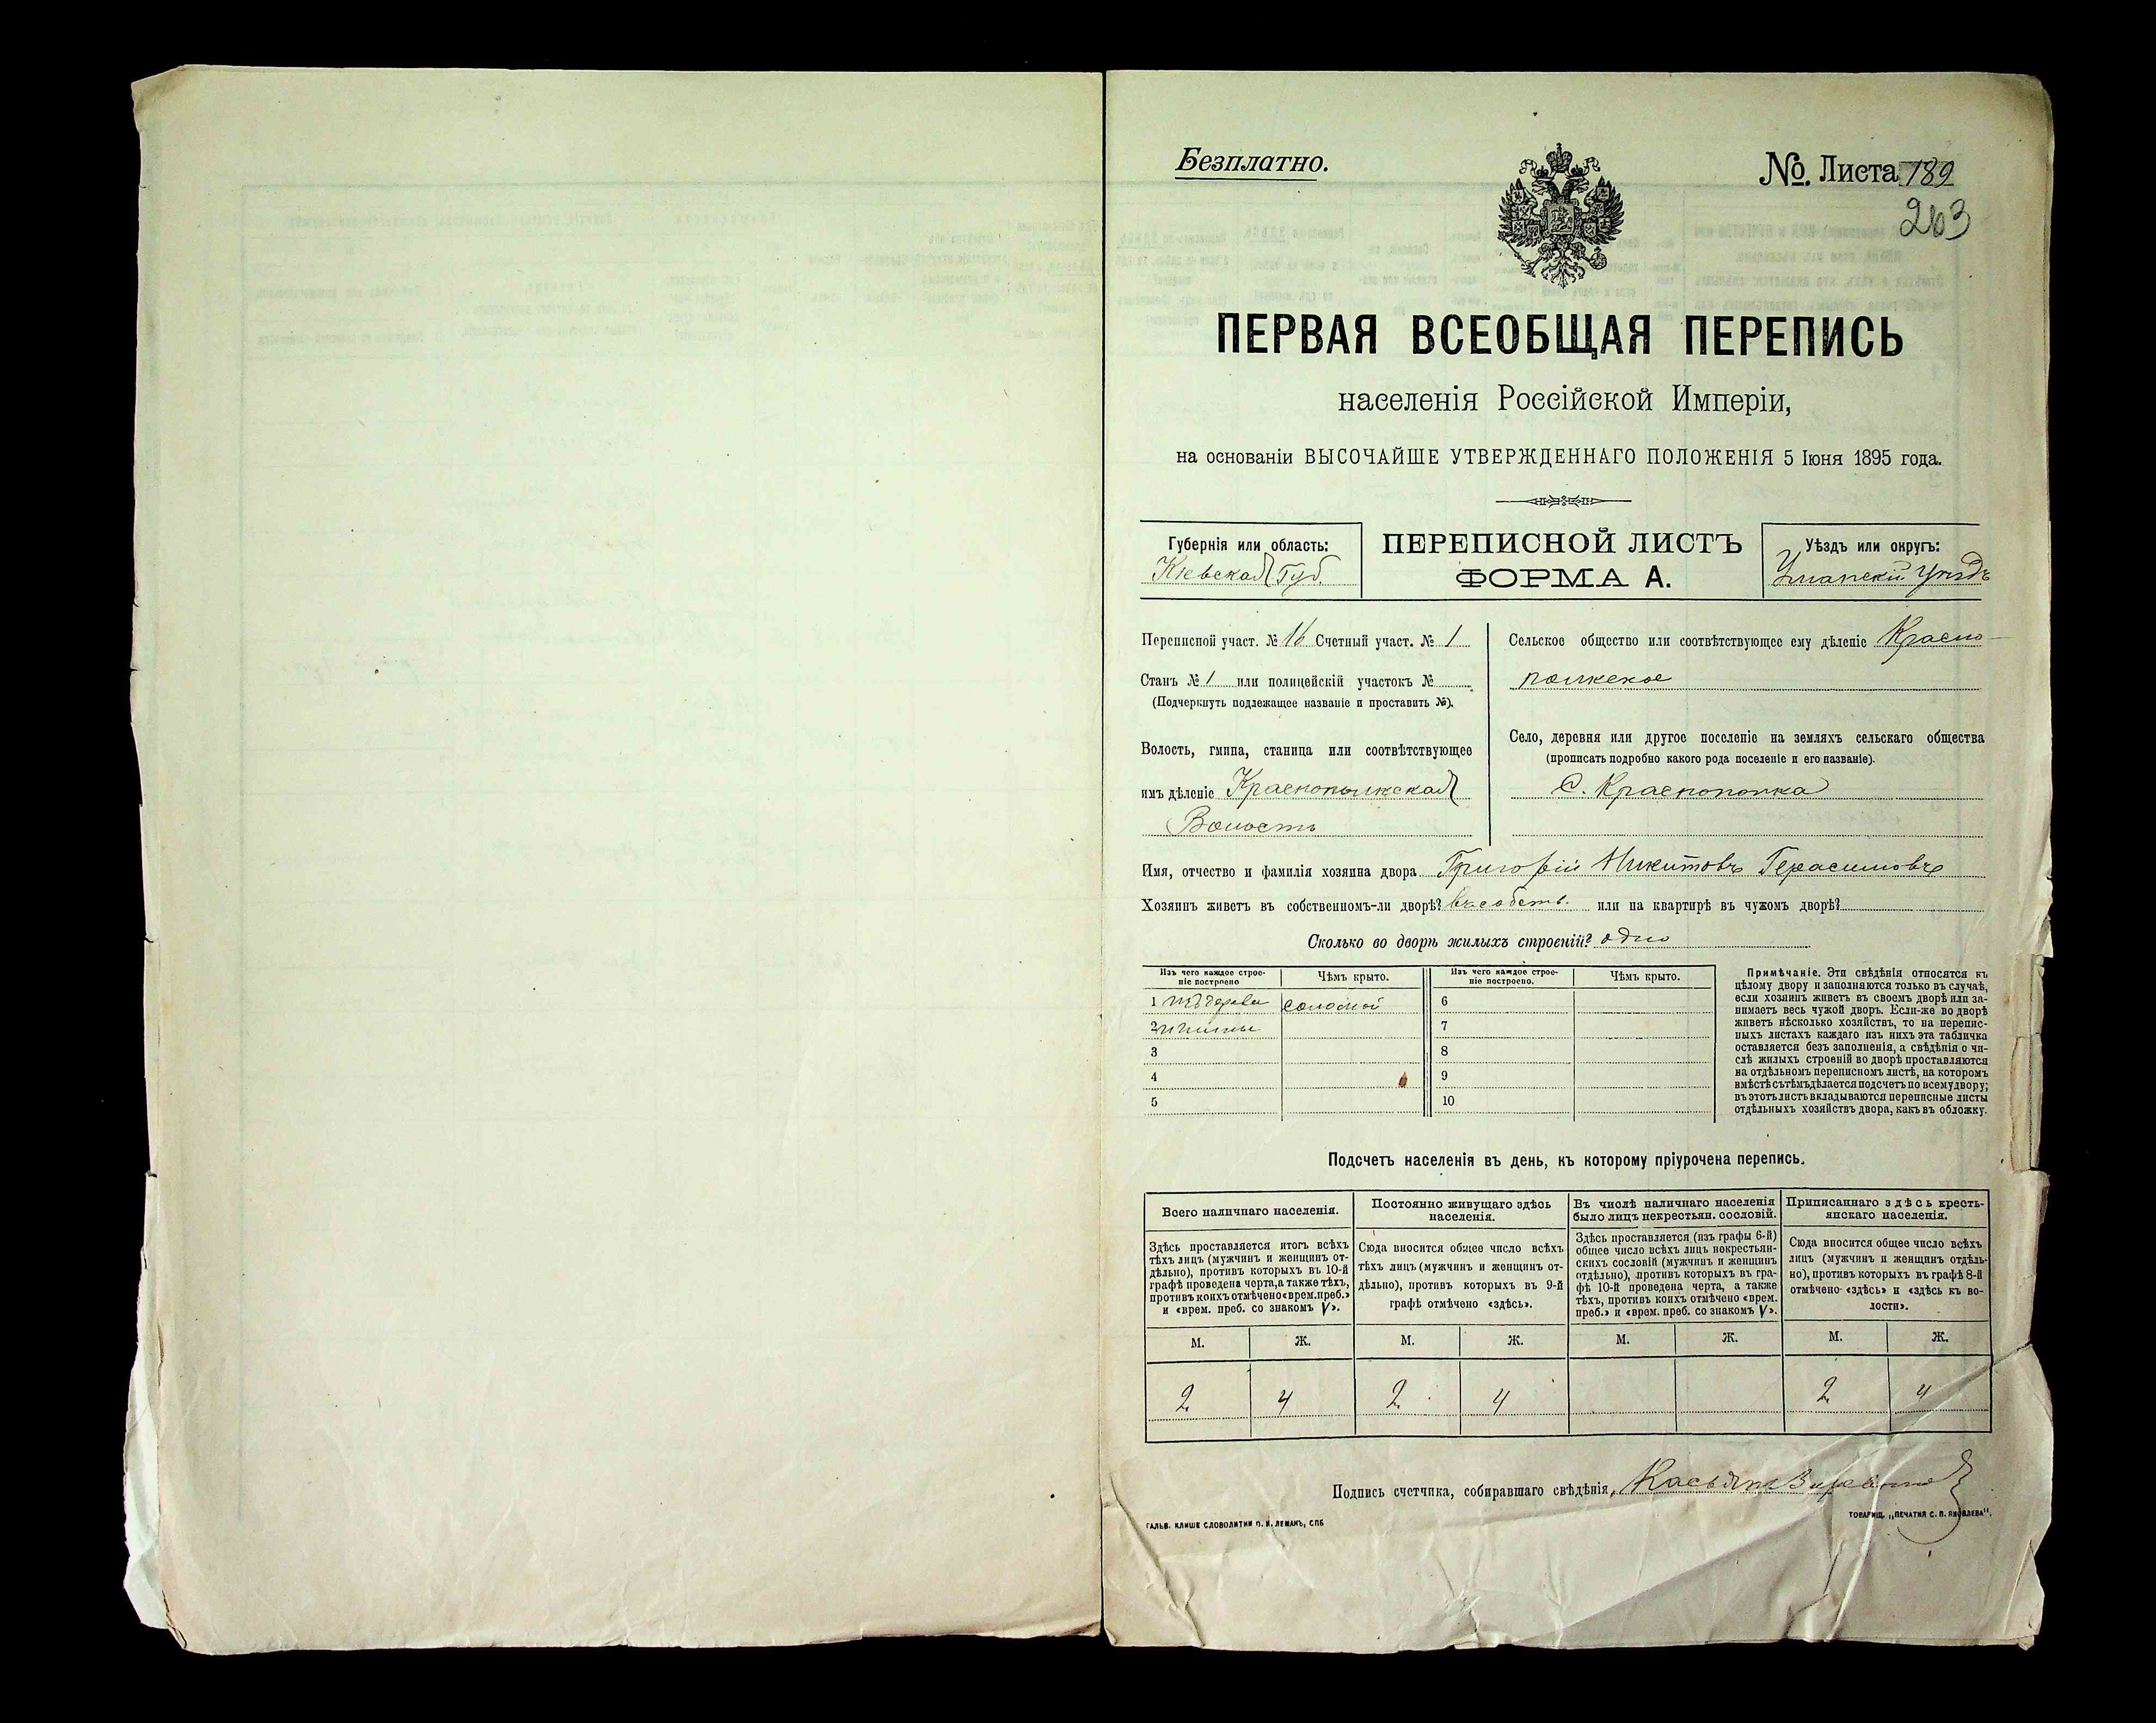 Безплатно.
№. Листа 189
263
ПЕРВАЯ ВСЕОБЩАЯ ПЕРЕПИСЬ
населенія Россійской Имперіи,
на основаніи ВЫСОЧАЙШЕ УТВЕРЖДЕННАГО ПОЛОЖЕНІЯ 5 Іюня 1895 года.
Губернія или область:
Кіевская Губ.
ПЕРЕПИСНОЙ ЛИСТЪ
ФОРМА А.
Уѣздъ или округъ:
Уманскій Уѣздъ
Переписной участ. № 16 Счетный участ. № 1
Станъ № 1 или полицейскій участокъ №
(Подчеркнуть подлежащее названіе и проставить №).
Волость, гмина, станица или соотвѣтствующее
имъ дѣленіе Краснопольская
Волость
Сельское общество или соотвѣтствующее ему дѣленіе Красно-
польское
Село, деревня или другое поселеніе на земляхъ сельскаго общества
(прописать подробно какого рода поселеніе и его названіе).
С. Краснополка
Имя, отчество и фамилія хозяина двора Григорій Никитовъ Герасимовъ
Хозяинъ живетъ въ собственномъ-ли дворѣ? въ собств. или на квартирѣ въ чужомъ дворѣ?
Сколько во дворѣ жилыхъ строеній? одно
Изъ чего каждое строе-
ніе построено
Чѣмъ крыто.
1 изъ дерева соломой
2 и глины
3
4
5
Изъ чего каждое строе-
ніе построено.
Чѣмъ крыто.
6
7
8
9
10
Примѣчаніе. Эти свѣдѣнія относятся къ
цѣлому двору и заполняются только въ случаѣ,
если хозяинъ живетъ въ своемъ дворѣ или за-
нимаетъ весь чужой дворъ. Если-же во дворѣ
живетъ нѣсколько хозяйствъ, то на перепис-
ныхъ листахъ каждаго изъ нихъ эта табличка
оставляется безъ заполненія, а свѣдѣнія о чи-
слѣ жилыхъ строеній во дворѣ проставляются
на отдѣльномъ переписномъ листѣ, на которомъ
вмѣстѣ съ тѣмъ дѣлается подсчетъ по всему двору;
въ этотъ листъ вкладываются переписные листы
отдѣльныхъ хозяйствъ двора, какъ въ обложку.
Подсчетъ населенія въ день, къ которому пріурочена перепись.
Всего наличнаго населенія.
Здѣсь проставляется итогъ всѣхъ
тѣхъ лицъ (мужчинъ и женщинъ от-
дѣльно), противъ которыхъ въ 10-й
графѣ проведена черта, а также тѣхъ,
противъ коихъ отмѣчено «врем. преб.»
и «врем. преб. со знакомъ V».
М. Ж.
2 4
Постоянно живущаго здѣсь
населенія.
Сюда вносится общее число всѣхъ
тѣхъ лицъ (мужчинъ и женщинъ от-
дѣльно), противъ которыхъ въ 9-й
графѣ отмѣчено «здѣсь».
М. Ж.
2 4
Въ числѣ наличнаго населенія
было лицъ некрестьян. сословій.
Здѣсь проставляется (изъ графы 6-й)
общее число всѣхъ лицъ некрестьян-
скихъ сословій (мужчинъ и женщинъ
отдѣльно), противъ которыхъ въ гра-
фѣ 10-й проведена черта, а также
тѣхъ, противъ коихъ отмѣчено «врем.
преб.» и «врем. преб. со знакомъ V».
М. Ж.
Приписаннаго здѣсь кресть-
янскаго населенія.
Сюда вносится общее число всѣхъ
лицъ (мужчинъ и женщинъ отдѣль-
но), противъ которыхъ въ графѣ 8-й
отмѣчено «здѣсь» и «здѣсь къ во-
лости».
М. Ж.
2 4
Подпись счетчика, собиравшаго свѣдѣнія, Касьянъ
ГАЛЬВ. КЛИШЕ СЛОВОЛИТНИ О. И. ЛЕМАНЪ, СПБ
ТОВАРИЩ. „ПЕЧАТНЯ С. П. ЯКОВЛЕВА".